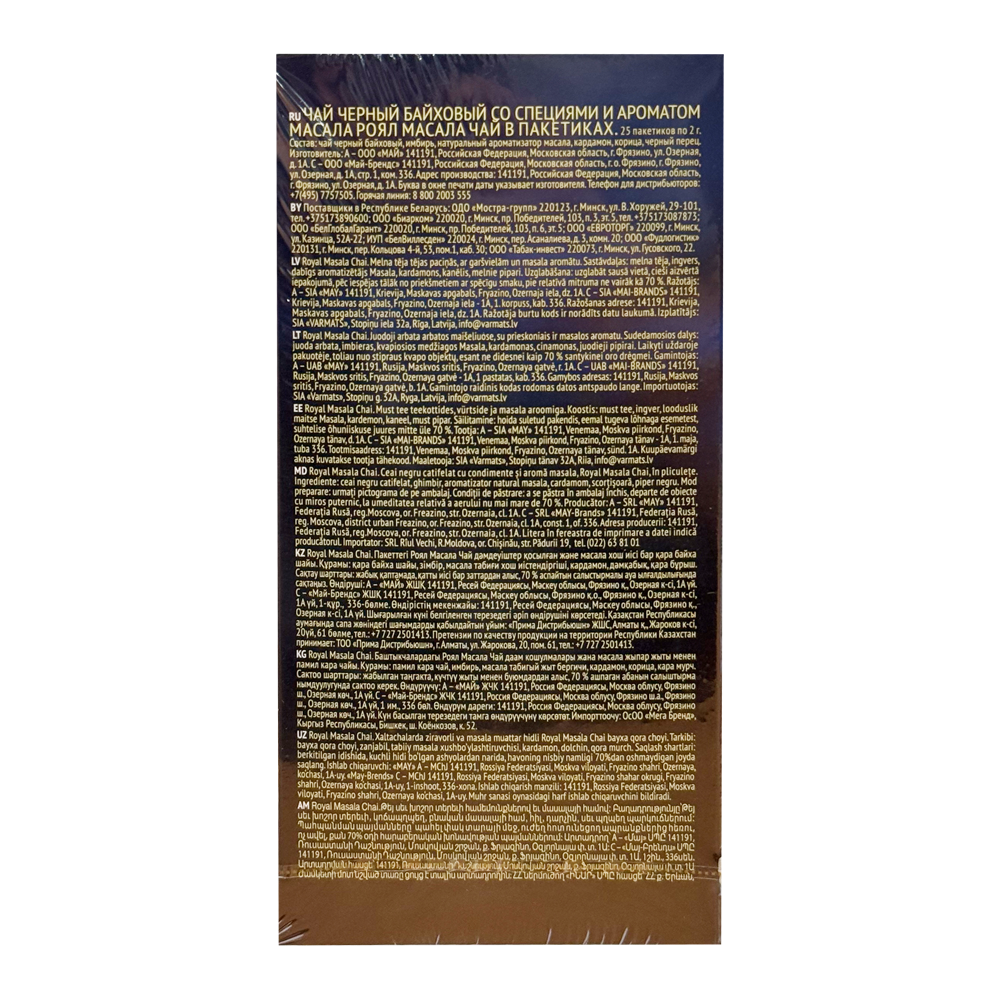 RU ЧАЙ ЧЕРНЫЙ БАЙХОВЫЙ СО СПЕЦИЯМИ И АРОМАТОМ
МАСАЛА РОЯЛ МАСАЛА ЧАЙ В ПАКЕТИКАХ. 25 пакетиков по 2 г.
Состав: чай черный байховый, имбирь, натуральный ароматизатор масала, кардамон, корица, черный перец.
Изготовитель: А – ООО «МАЙ» 141191, Российская Федерация, Московская область, г. Фрязино, ул. Озерная,
д. 1А. С – ООО «Май-Брендс» 141191, Российская Федерация, Московская область, г. о. Фрязино, г. Фрязино,
ул. Озерная, д. 1А, стр. 1, ком. 336. Адрес производства: 141191, Российская Федерация, Московская область,
г. Фрязино, ул. Озерная, д. 1А. Буква в окне печати даты указывает изготовителя. Телефон для дистрибьюторов:
+7(495) 7757505. Горячая линия: 8 800 2003 555
BY Поставщики в Республике Беларусь: ОДО «Мостра-групп» 220123, г. Минск, ул. В. Хоружей, 29-101,
тел. +375173890600; ООО «Биарком» 220020, г. Минск, пр. Победителей, 103, п. 3, эт. 5, тел. +375173087873;
ООО «БелГлобалГарант» 220020, г. Минск, пр. Победителей, 103, п. 6, эт. 5; ООО «ЕВРОТОРГ» 220099, г. Минск,
ул. Казинца, 52А-22; ИУП «БелВиллесден» 220024, г. Минск, пер. Асаналиева, д. 3, комн. 20; ООО «Фудлогистик»
220131, г. Минск, пер. Кольцова 4-й, 53, пом. 1, каб. 30; ООО «Табак-инвест» 220073, г. Минск, ул. Гусовского, 22.
LV Royal Masala Chai. Melna tēja tējas paciņās, ar garšvielām un masala aromātu. Sastāvdaļas: melna tēja, ingvers,
dabīgs aromatizētājs Masala, kardamons, kanēlis, melnie pipari. Uzglabāšana: uzglabāt sausā vietā, cieši aizvērtā
iepakojumā, pēc iespējas tālāk no priekšmetiem ar spēcīgu smaku, pie relatīvā mitruma ne vairāk kā 70 %. Ražotājs:
A – SIA «MAY» 141191, Krievija, Maskavas apgabals, Fryazino, Ozernaja iela, dz. 1A. C – SIA «MAI-BRANDS» 141191,
Krievija, Maskavas apgabals, Fryazino, Ozernaja iela - 1A, 1. korpuss, kab. 336. Ražošanas adrese: 141191,
Krievija, Maskavas apgabals, Fryazino, Ozernaja iela, dz. 1A. Ražotāja burtu kods ir norādīts datu laukumā. Izplatītājs:
SIA «VARMATS», Stopiņu iela 32a, Rīga, Latvija, info@varmats.lv
LT Royal Masala Chai. Juodoji arbata arbatos maišeliuose, su prieskoniais ir masalos aromatu. Sudedamosios dalys:
juoda arbata, imbieras, kvapiosios medžiagos Masala, kardamonas, cinamonas, juodieji pipirai. Laikyti uždaroje
pakuotėje, toliau nuo stipraus kvapo objektų, esant ne didesnei kaip 70 % santykinei oro drėgmei. Gamintojas:
A – UAB «MAY» 141191, Rusija, Maskvos sritis, Fryazino, Ozernaya gatvė, r. 1A. C – UAB «MAI-BRANDS» 141191,
Rusija, Maskvos sritis, Fryazino, Ozernaya gatvė - 1A, 1 pastatas, kab. 336. Gamybos adresas: 141191, Rusija,
Maskvos sritis, Fryazino, Ozernaya gatvė, b. 1A. Gamintojo raidinis kodas rodomas datos antspaudo lange. Importuotojas:
SIA «Varmats», Stopiņu g. 32A, Ryga, Latvija, info@varmats.lv
EE Royal Masala Chai. Must tee teekottides, vürtside ja masala aroomiga. Koostis: must tee, ingver, looduslik
maitse Masala, kardemon, kaneel, must pipar. Säilitamine: hoida suletud pakendis, eemal tugeva lõhnaga esemetest,
suhtelise õhuniiskuse juures mitte üle 70 %. Tootja: A – SIA «MAY» 141191, Venemaa, Moskva piirkond, Fryazino,
Ozernaya tänav, d. 1A. C – SIA «MAI-BRANDS» 141191, Venemaa, Moskva piirkond, Fryazino, Ozernaya tänav - 1A, 1. maja,
tuba 336. Tootmisaadress: 141191, Venemaa, Moskva piirkond, Fryazino, Ozernaya tänav, sünd. 1A. Kuupäevamärgi
aknas kuvatakse tootja tähekood. Maaletooja: SIA «Varmats», Stopiņu tänav 32A, Riia, info@varmats.lv
MD Royal Masala Chai. Ceai negru catifelat cu condimente și aromă masala, Royal Masala Chai, în pliculețe.
Ingrediente: ceai negru catifelat, ghimbir, aromatizator natural masala, cardamom, scorțișoară, piper negru. Mod
preparare: urmați pictograma de pe ambalaj. Condiții de păstrare: a se păstra în ambalaj închis, departe de obiecte
cu miros puternic, la umeditatea relativă a aerului nu mai mare de 70 %. Producător: A – SRL «MAY» 141191,
Federația Rusă, reg. Moscova, or. Freazino, str. Ozernaia, cl. 1A. C – SRL «MAY-Brands» 141191, Federația Rusă,
reg. Moscova, district urban Freazino, or. Freazino, str. Ozernaia, cl. 1A, const. 1, of. 336. Adresa producerii: 141191,
Federația Rusă, reg. Moscova, or. Freazino, str. Ozernaia, cl. 1A. Litera în fereastra de imprimare a datei indică
producătorul. Importator: SRL Rîul Vechi, R. Moldova, or. Chișinău, str. Pădurii 19, tel. (022) 63 81 01
KZ Royal Masala Chai. Пакеттегі Роял Масала Чай дәмдеуіштер қосылған және масала хош иісі бар қара байха
шайы. Құрамы: қара байха шайы, зімбір, масала табиғи хош иістендіргіші, кардамон, дамқабық, қара бұрыш.
Сақтау шарттары: жабық қаптамада, қатты иісі бар заттардан алыс, 70 % аспайтын салыстырмалы ауа ылғалдылығында
сақтаңыз. Өндіруші: А – «МАЙ» ЖШҚ 141191, Ресей Федерациясы, Мәскеу облысы, Фрязино қ., Озерная к-сі, 1А үй.
С – «Май-Брендс» ЖШҚ 141191, Ресей Федерациясы, Мәскеу облысы, Фрязино қ.о., Фрязино қ., Озерная к-сі,
1А үй, 1-құр., 336-бөлме. Өндірістің мекенжайы: 141191, Ресей Федерациясы, Мәскеу облысы, Фрязино қ.,
Озерная к-сі, 1А үй. Шығарылған күні белгіленген терезедегі әріп өндірушіні көрсетеді. Қазақстан Республикасы
аумағында сапа жөніндегі шағымдарды қабылдайтын ұйым: «Прима Дистрибьюшн» ЖШС, Алматы қ., Жароков к-сі,
20үй, 61 бөлме, тел.: +7 727 2501413. Претензии по качеству продукции на территории Республики Казахстан
принимает: ТОО «Прима Дистрибьюшн», г. Алматы, ул. Жарокова, 20, пом. 61, тел.: +7 727 2501413.
KG Royal Masala Chai. Баштыкчалардагы Роял Масала Чай даам кошулмалары жана масала жыпар жыты менен
памил кара чайы. Курамы: памил кара чай, имбирь, масала табигый жыт бергичи, кардамон, корица, кара мурч.
Сактоо шарттары: жабылган таңгакта, күчтүү жыты менен буюмдардан алыс, 70 % ашпаган абанын салыштырма
нымдуулугунда сактоо керек. Өндүрүүчү: А – «МАЙ» ЖЧК 141191, Россия Федерациясы, Москва облусу, Фрязино
ш., Озерная көч., 1А үй. С – «Май-Брендс» ЖЧК 141191, Россия Федерациясы, Москва облусу, Фрязино ш.а., Фрязино
ш., Озерная көч., 1А үй, 1 им., 336 бөл. Өндүрүм дареги: 141191, Россия Федерациясы, Москва облусу, Фрязино
ш., Озерная көч., 1А үй. Күн басылган терезедеги тамга өндүрүүчүнү көрсөтөт. Импорттоочу: ОсОО «Мега Бренд»,
Кыргыз Республикасы, Бишкек, ш. Коёнкозов, к. 52.
UZ Royal Masala Chai. Xaltachalarda ziravorli va masala muattar hidli Royal Masala Chai bayxa qora choyi. Tarkibi:
bayxa qora choyi, zanjabil, tabiiy masala xushbo'ylashtiruvchisi, kardamon, dolchin, qora murch. Saqlash shartlari:
berkitilgan idishida, kuchli hidi bo'lgan ashyolardan narida, havoning nisbiy namligi 70%dan oshmaydigan joyda
saqlang. Ishlab chiqaruvchi: «MAY» A – MChJ 141191, Rossiya Federatsiyasi, Moskva viloyati, Fryazino shahri, Ozernaya
ko'chasi, 1A-uy. «May-Brends» C – MChJ 141191, Rossiya Federatsiyasi, Moskva viloyati, Fryazino shahar okrugi, Fryazino
shahri, Ozernaya ko'chasi, 1A-uy, 1-inshoot, 336-xona. Ishlab chiqarish manzili: 141191, Rossiya Federatsiyasi, Moskva
viloyati, Fryazino shahri, Ozernaya ko'chasi, 1A-uy. Muhr sanasi oynasidagi harf ishlab chiqaruvchini bildiradi.
AM Royal Masala Chai. Թեյ սեւ խոշոր տերեւի համեմունքներով եւ մասալայի համով: Բաղադրությունը՝ Թեյ
սեւ խոշոր տերեւի, կոճապղպեղ, բնական մասալայի համ, հիլ, դարչին, սեւ պղպեղ պարկուճներում:
Պահպանման պայմանները՝ պահել փակ տարայի մեջ, ուժեղ հոտ ունեցող ապրանքներից հեռու,
ոչ ավել, քան 70% օդի հարաբերական խոնավության պայմաններում: Արտադրող՝ Ա – «Մայ» ՍՊԸ 141191,
Ռուսաստանի Դաշնություն, Մոսկովյան շրջան, ք. Ֆրյազինո, Օզյորնայա փ. տ. 1Ա: C – «Մայ-Բրենդս» ՍՊԸ
141191, Ռուսաստանի Դաշնություն, Մոսկովյան շրջան, ք. Ֆրյազինո, Օզյորնայա փ. տ. 1Ա, 1շին., 336սեն.
Արտադրման հասցե՝ 141191, Ռուսաստանի Դաշնություն, Մոսկովյան շրջան, ք. Ֆրյազինո, Օզյորնայա փ. տ. 1Ա